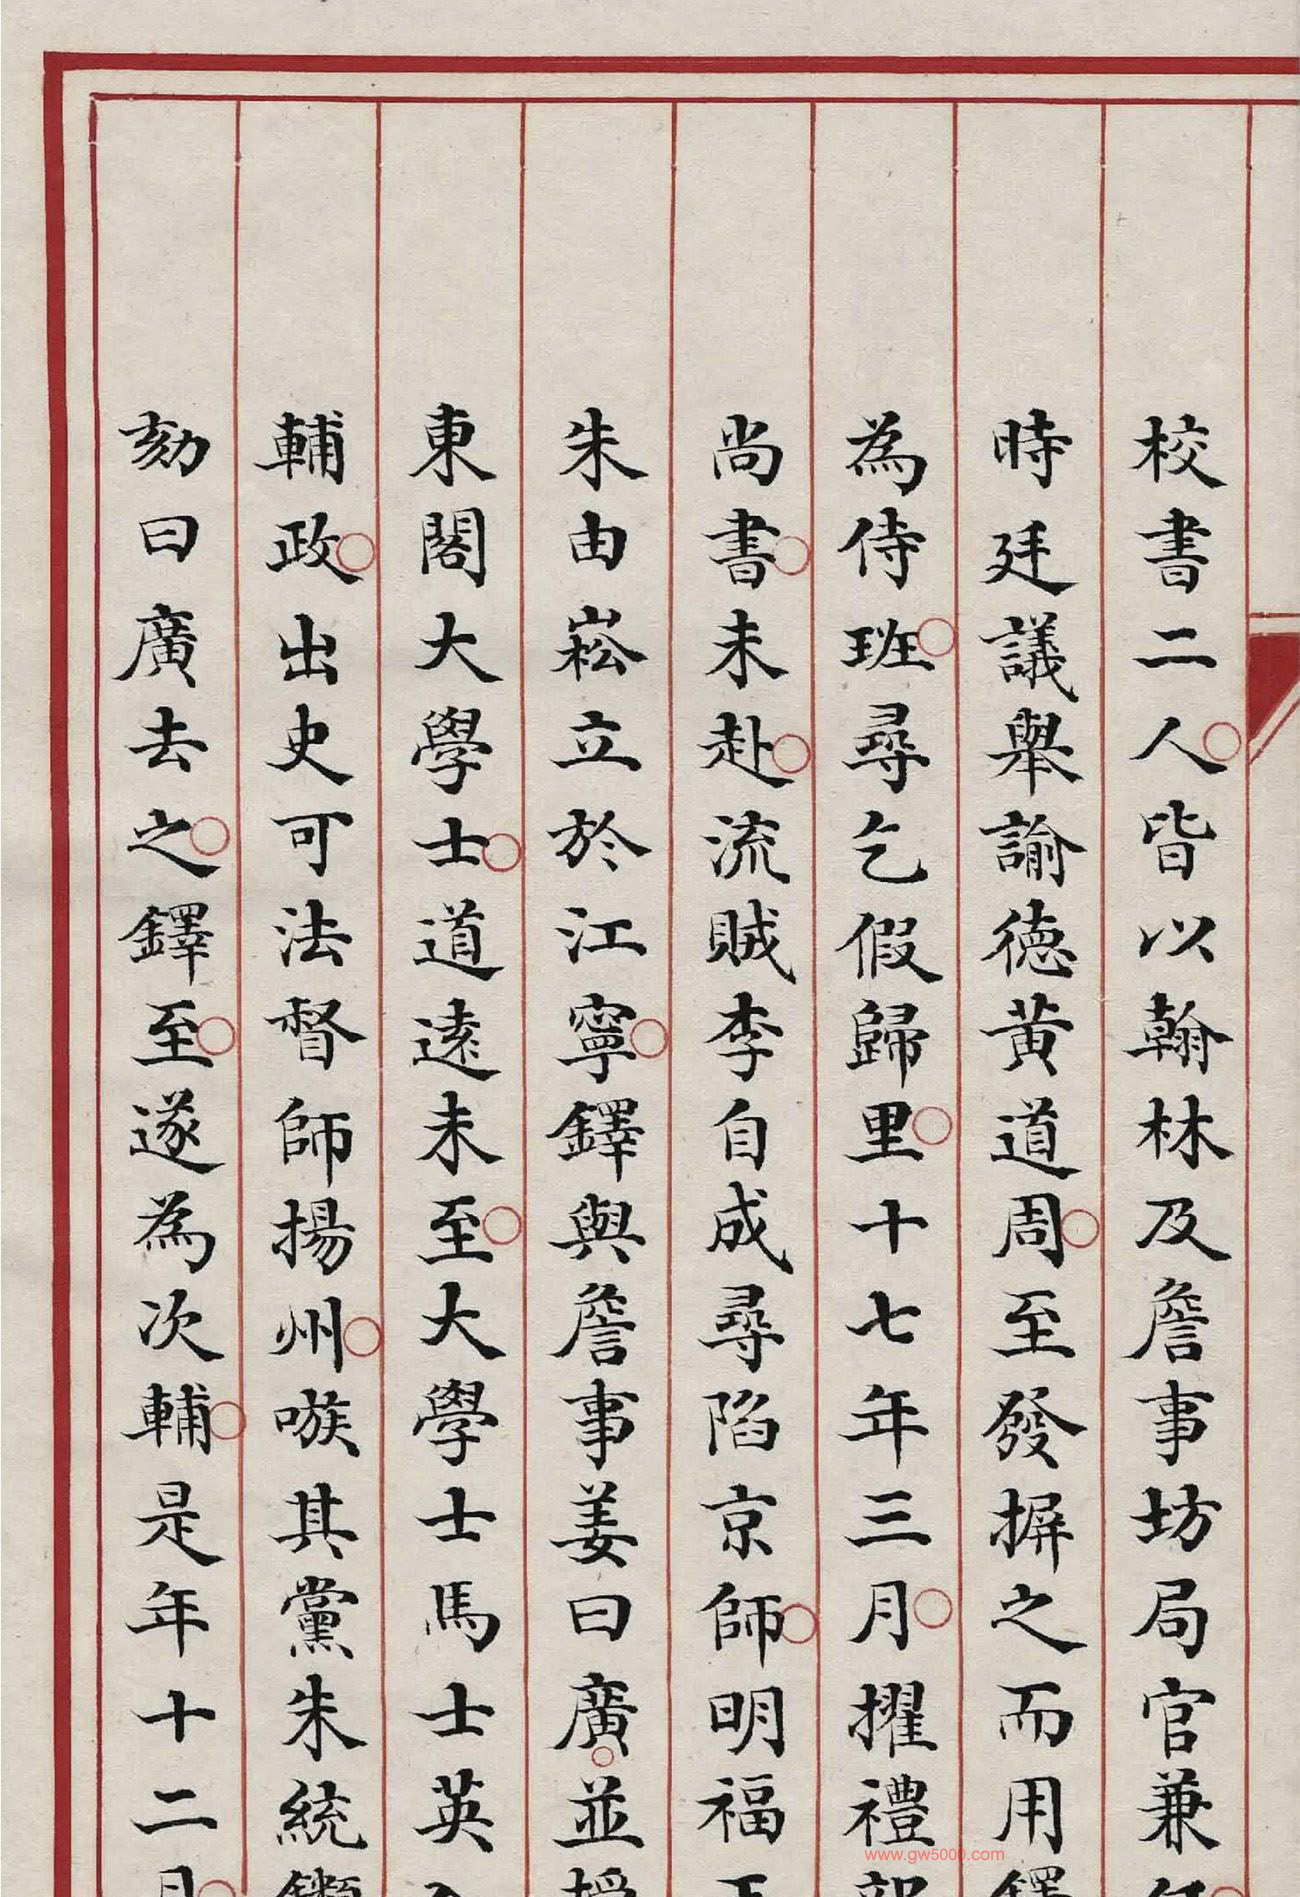 校書二人皆以翰林及詹事坊局官兼
時廷議舉諭德黃道周至發摒之而用鐸
為侍班尋乞假歸里十七年三月擢禮部
尚書未赴流賊李自成尋陷京師明福王
朱由崧立於江寧鐸與詹事姜曰廣並授
東閣大學士道遠未至大學士馬士英入
輔政出史可法督師揚州嗾其黨朱統𨰥
劾曰廣去之鐸至遂為次輔是年十二月
www.gw5000.com